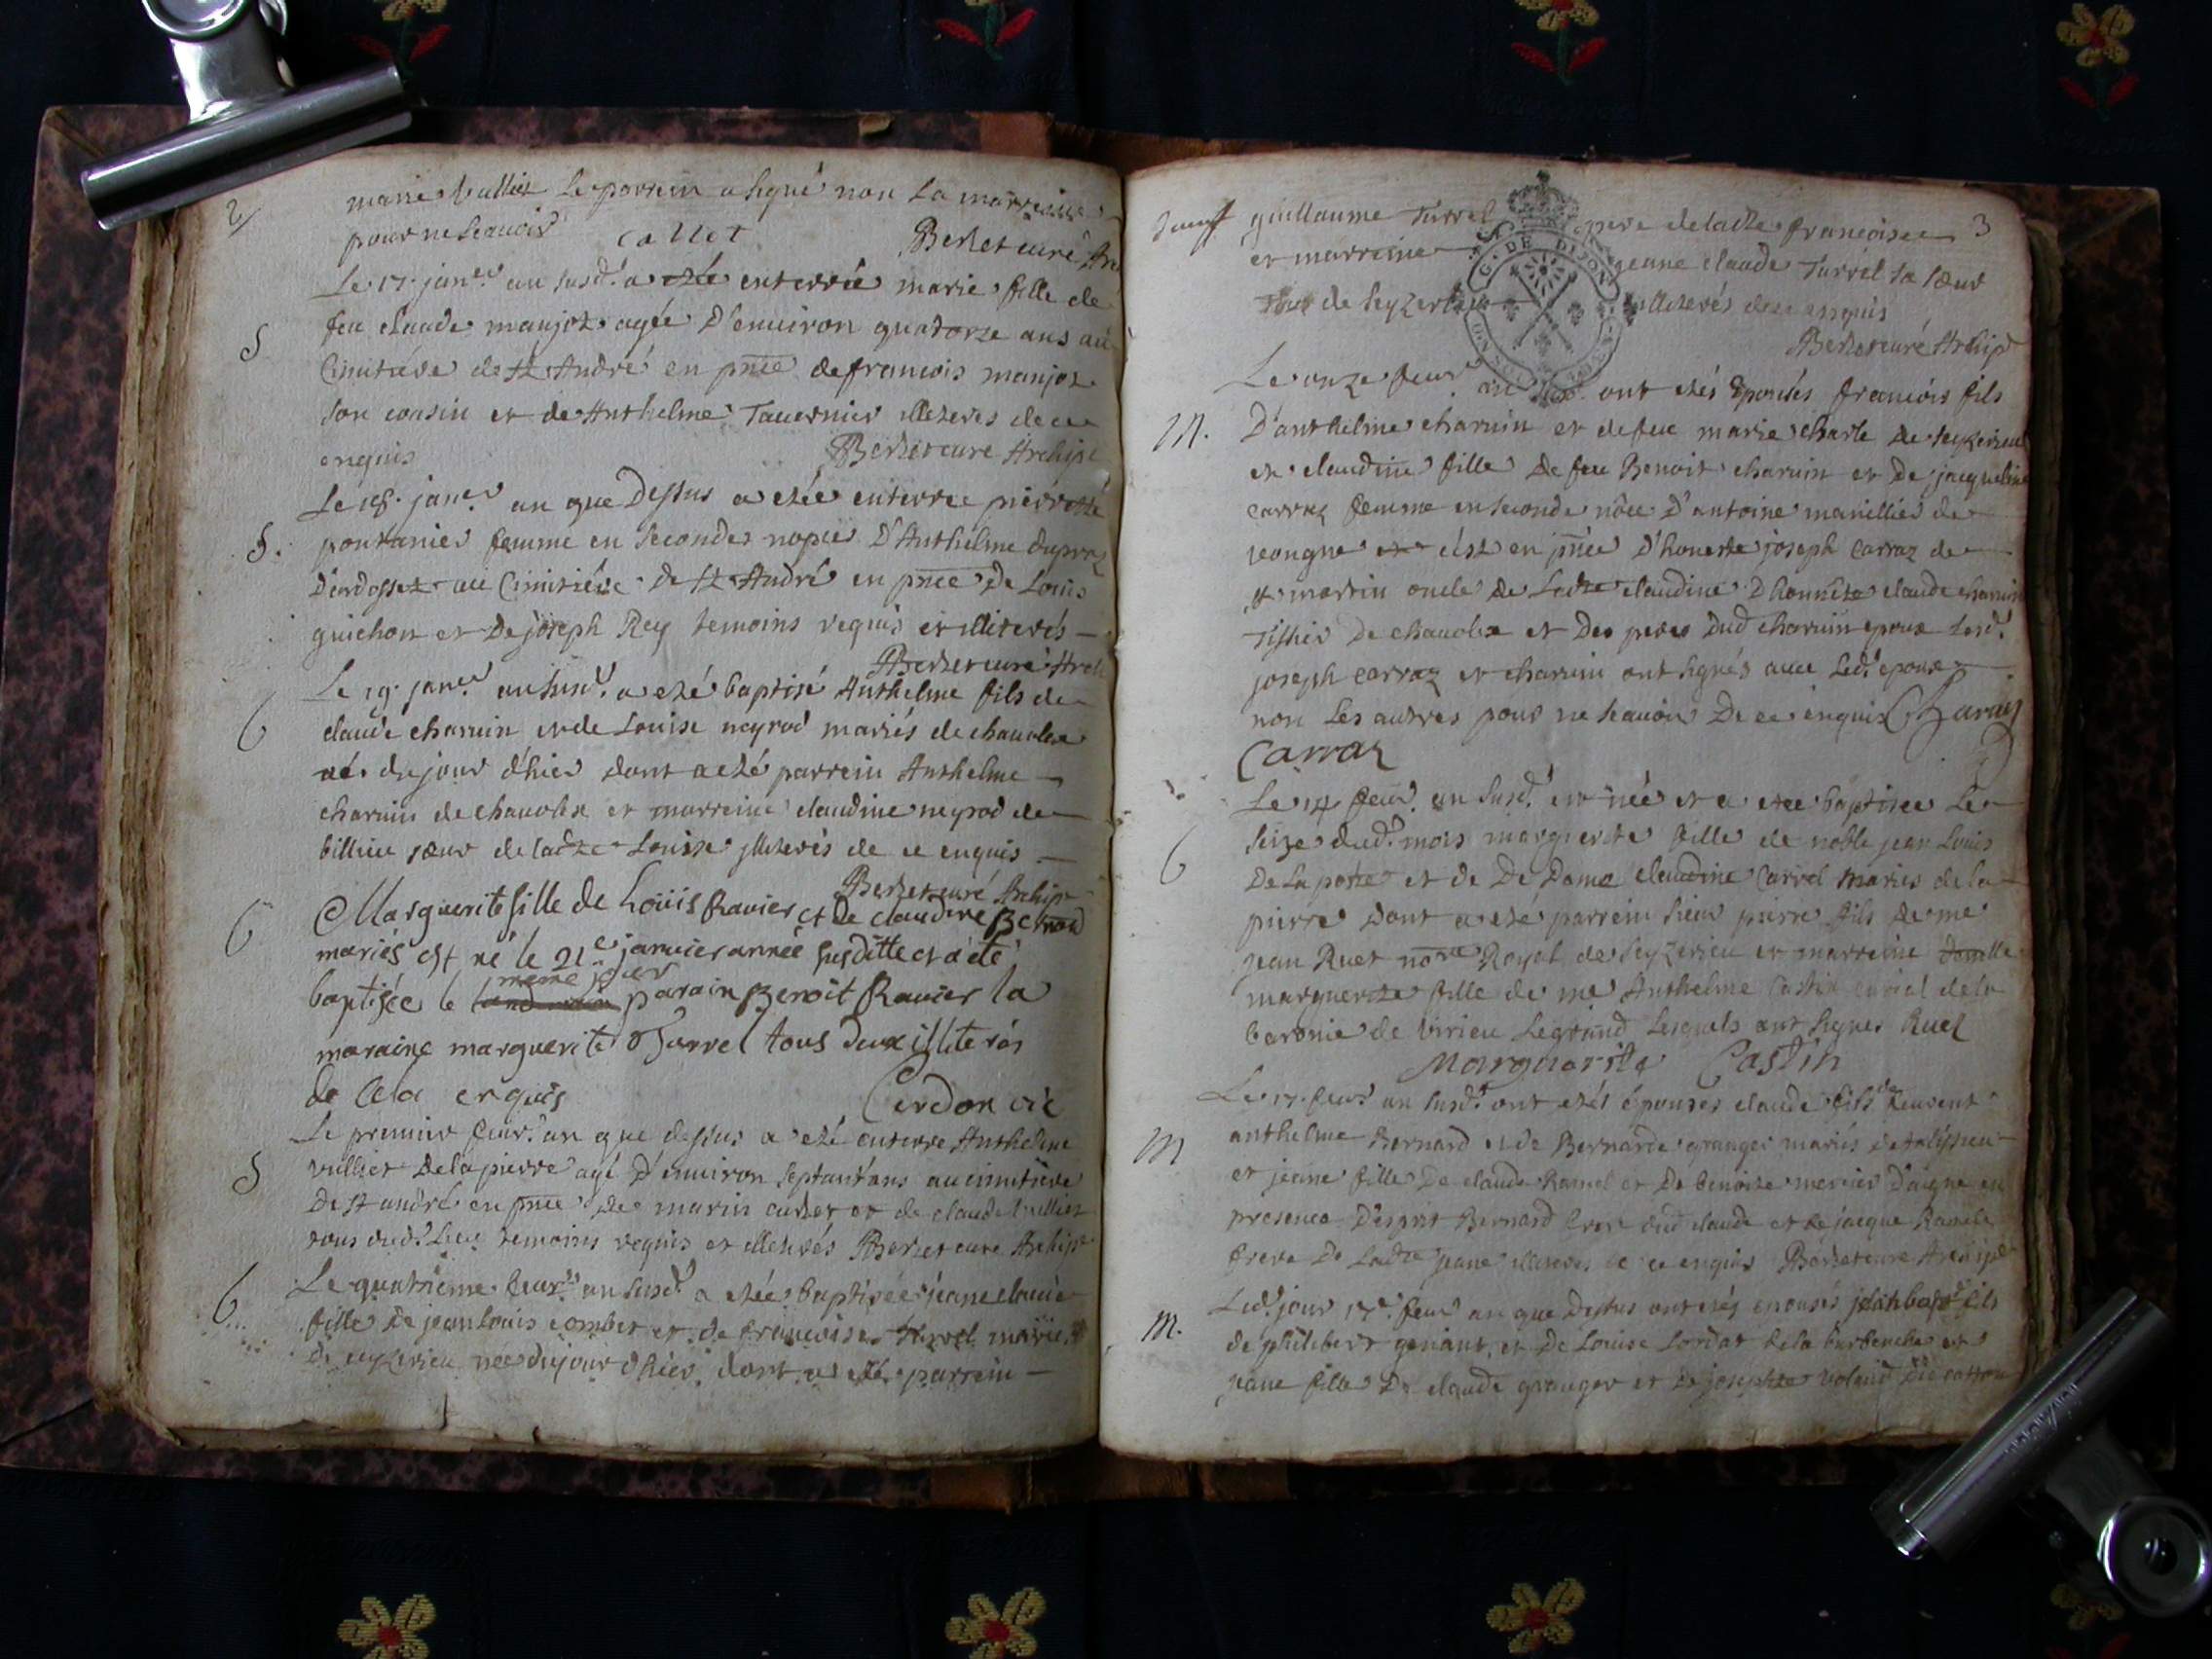 2/
marie Vulliet Le parrein a signé non La marreine
pour ne scavoir
Callet
Berzet curé Arc
Le 17. janer. an susd. a etée enterrée marie fille de
S
feu claude manjoz agée D'environ quatorze ans au
Cimitiére de St André en pnce de francois manjoz
son cousin et de Anthelme Tavernier illeterés de ce
enquis
Berzet curé Archip
Le 18. janer an que Dessus a etée enterrée pierrette
S.
pontanier femme en secondes nopces D'Anthelme dupraz
D'ardosset au Cimitiére de St André en pnce de Louis
guichon et De joseph Rey temoins requis et illiterés
Berzet curé Arch
Le 19. janer. an susd. a eté baptisé Anthelme fils de
6
claude charvin et de Louise neyrod mariés de chavolex
né du jour d'hier dont a eté parrein Anthelme
charvin de chavolex et marreine claudine neyrod de
billieu sœur de ladte Louise illeterés de ce enquis
Berzet curé Archip
6
Marguerite fille de Loüis Ravier et de claudine Bernard
mariés est né le 21e janvier année susditte et a été
même jour
baptisée le parain Benoit Ravier la
maraine marguerite Turrel tous deux illiterés
de Cela enquis
Cerdon vic
Le premier fevr. an que dessus a eté enterré Anthelme
S
vulliet De la pierre agé D'environ septant'ans au cimitiére
De St andré en pnce De marin et de claude Vulliet
tous dud. Lieu temoins requis et illeterés Berzet curé Archip
Le quatrieme fevr. an susd. a etée baptisée jeane claude
6
fille De jean Louis combet et de francoise Turrel mariés
De ceyzerieu née du jour d'hier dont a eté parrein
3
guillaume Turrel pere de ladte francoise
et marreine jeane claude Turrel sa sœur
Tous de seyzerieu illeterés de ce enquis
G. DE DIJON
Berzet curé Archip
Le onze fevr. an susd. ont etés Epousés francois fils
M.
D'anthelme charvin et de feu marie charle de seyzerieu
et claudine fille De feu Benoit charvin et De jacqueline
carraz femme en seconde nôce D'antoine marillier de
vongne et c'est en pnce D'honeste joseph carraz de
St martin oncle De Ladte claudine D'honnête claude charvin
Tissier De chavolex et Des peres Dud charvin epoux Lesd.
joseph carraz et charvin ont signés avec Led. epoux
non Les autres pour ne scavoir De ce enquis Charvin
Carraz
Le 14 fevr. an susd. est née et a etée baptisée Le
6
seize dud. mois marguerite fille de noble jean Louis
De La porte et de De Dame claudine Carrel mariés de la
pierre Dont a eté parrein sieur pierre fils de me
jean Ruet nore Royal de seyzerieu et marreine
marguerite fille de me Anthelme Castin de la
baronie de Virieu Legrand Lesquels ont signés Ruet
Marguerite Castin
Le 17. fevr. an susd. ont etés épousés claude fils de
M
anthelme Bernard et de Bernarde granger mariés de talissieu
et jeane fille De claude Ramel et De benoite mercier D'aigne en
presence D'esprit Bernard frere dud claude et de jacque Ramel
frere De Ladte jeane illeterés de ce enquis Berzet curé Archip
Led. jour 17e. fevr an que Dessus ont etés epousés fils
M.
de philibert et De Louise de la et
jeane fille De claude granger et De josephte